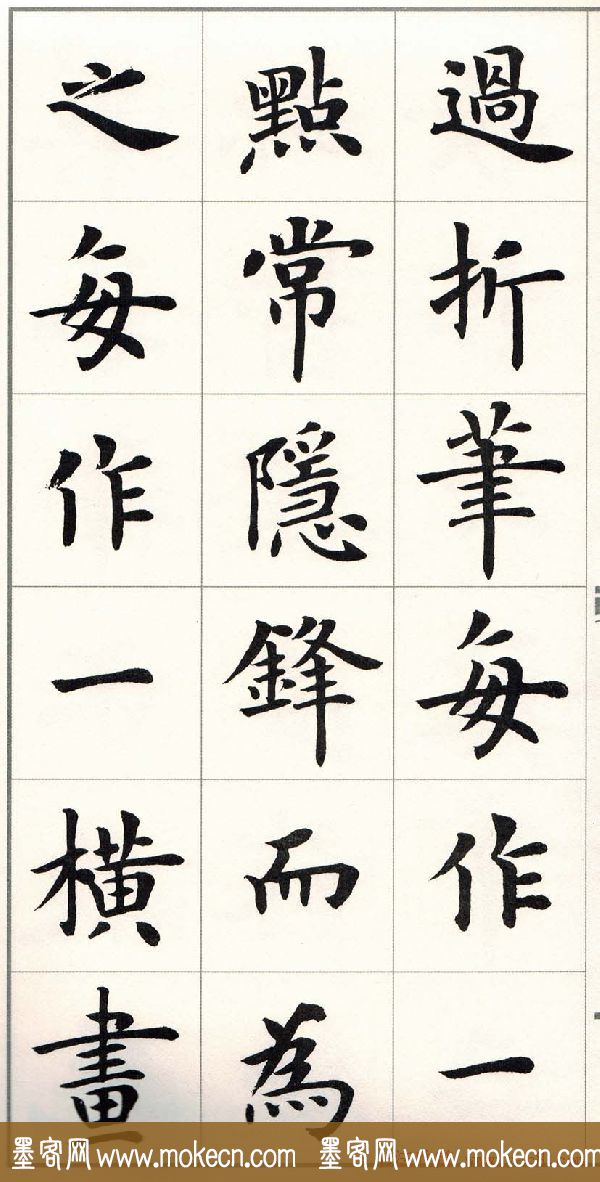 過折筆每作一
點常隱鋒而為
之每作一橫畫
墨客网 www.mokecn.com 墨客网 www.mokecn.com